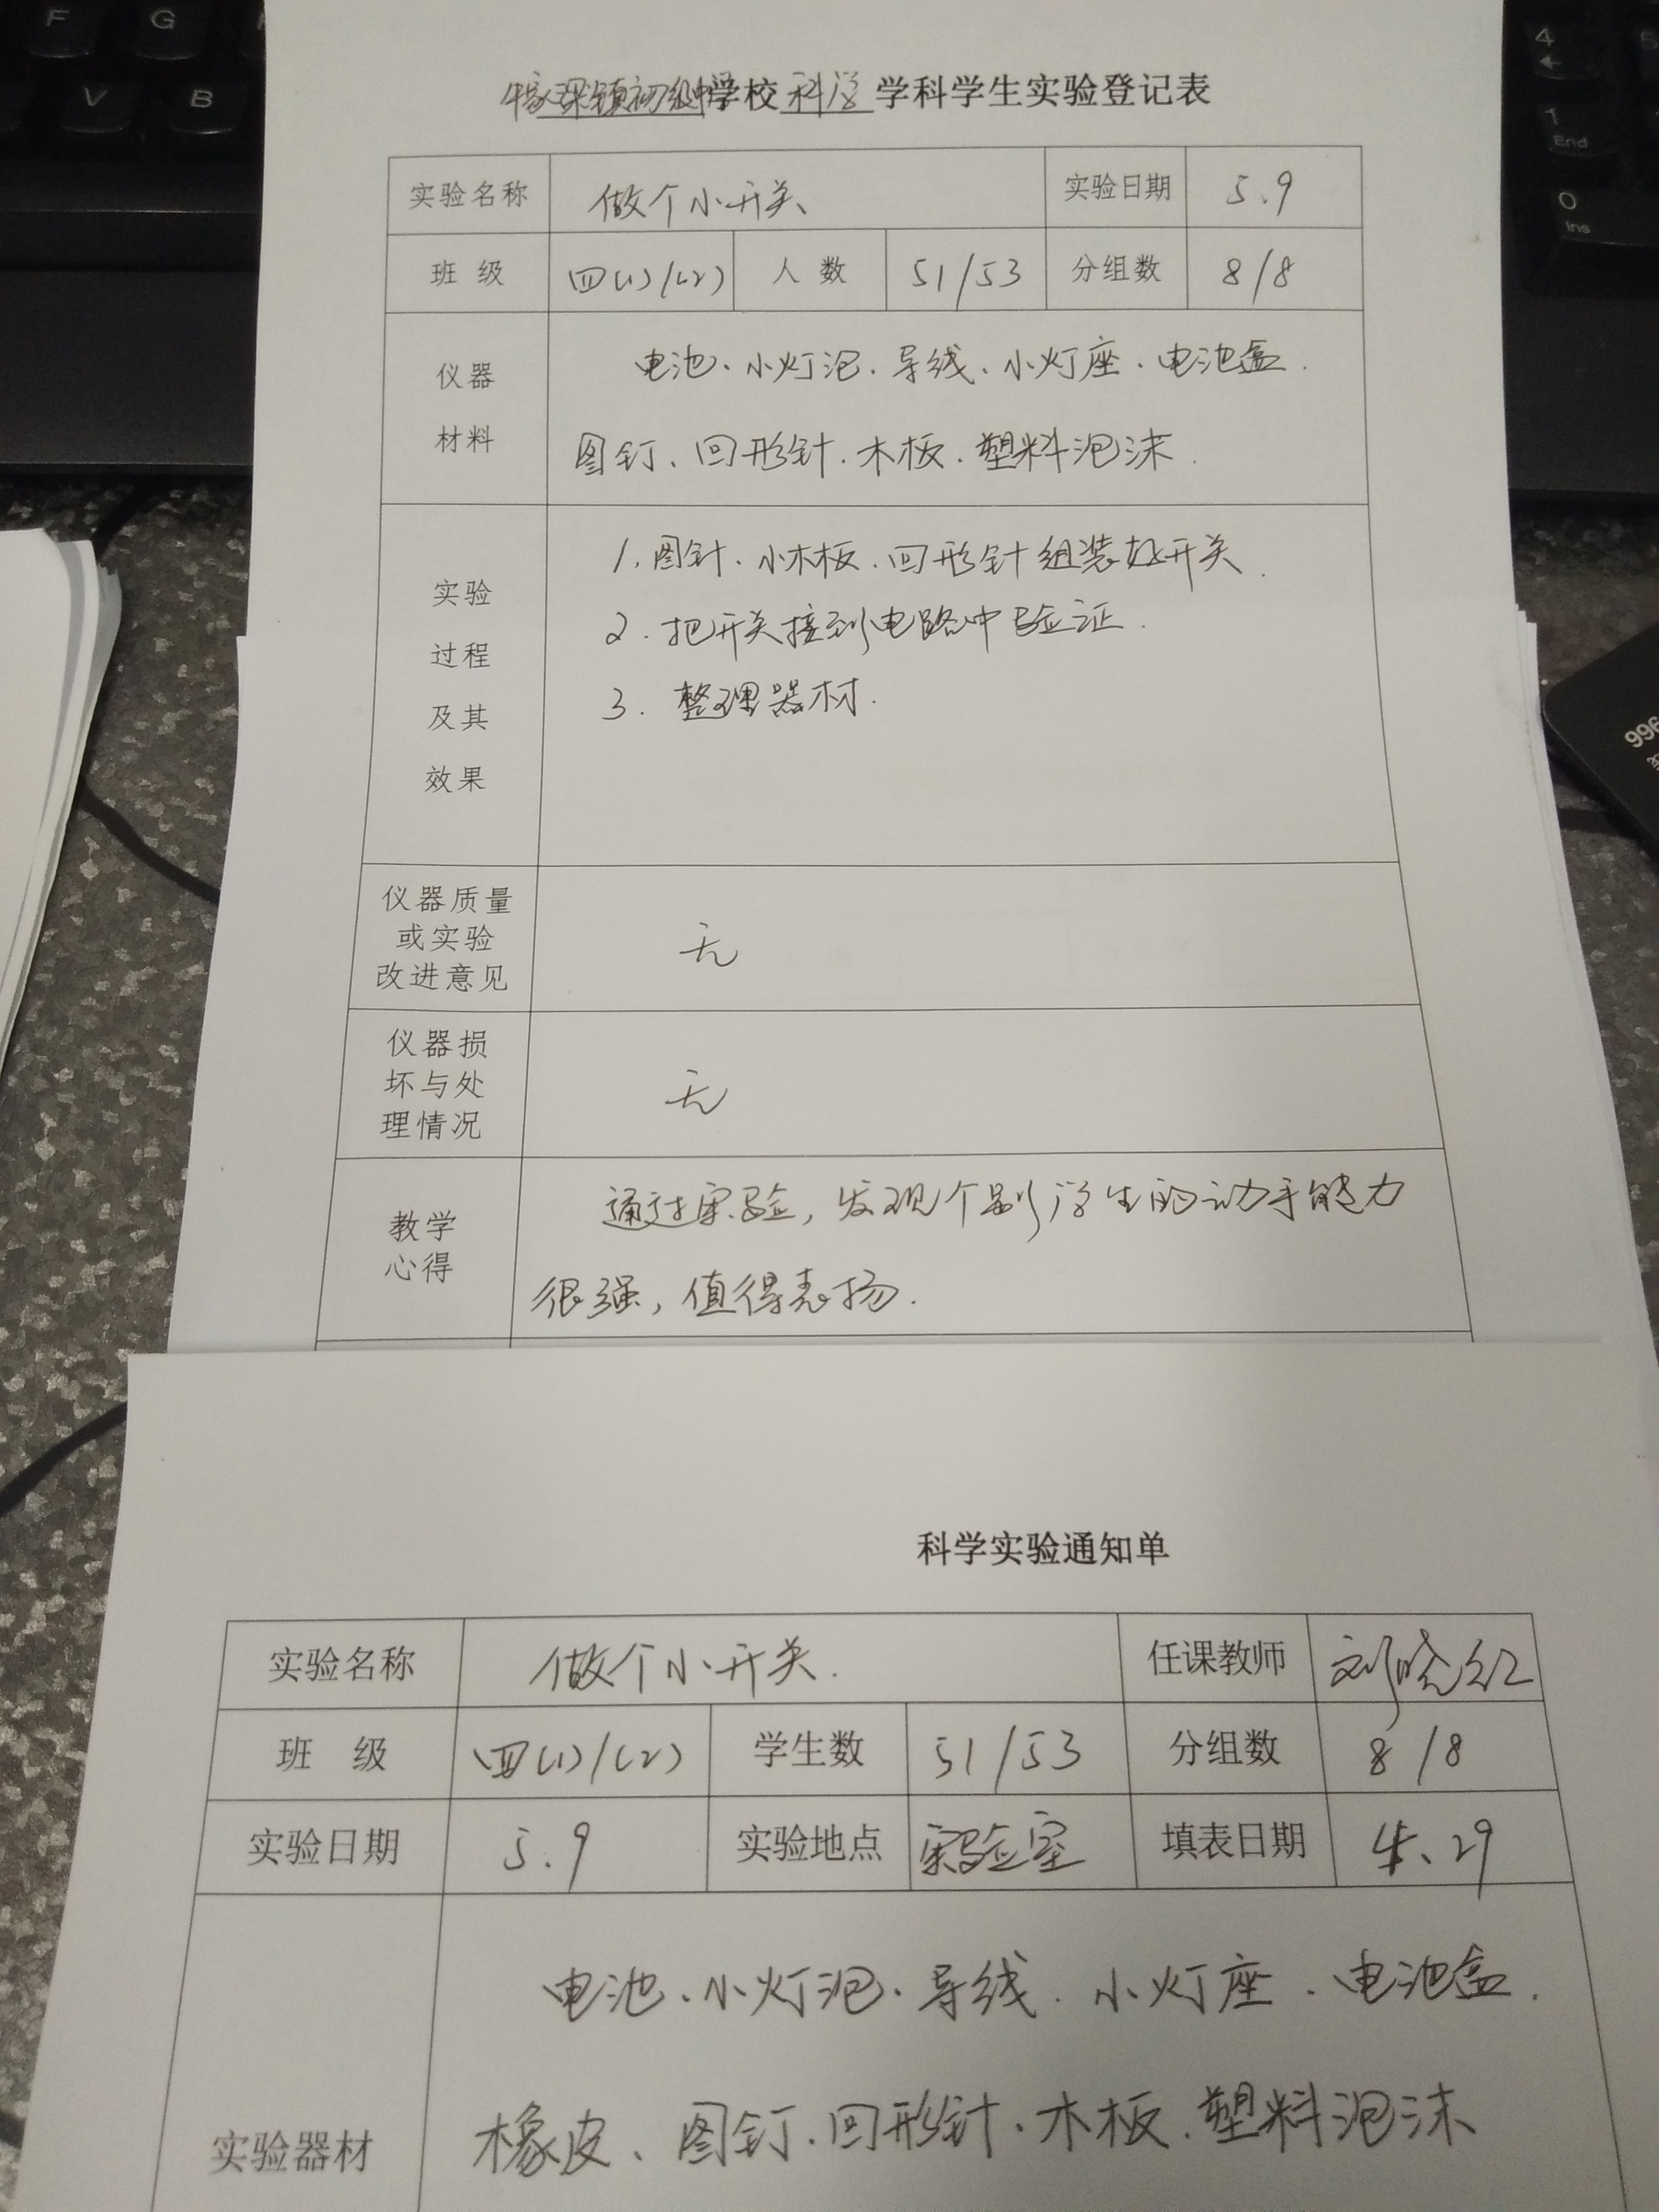 F G
V B
4
1
End
0
Ins
996
镇初级中学校 科学 学科学生实验登记表
实验名称 做个小开关 实验日期 5.9
班 级 四(1)/(2) 人 数 51/53 分组数 8/8
仪器
材料
电池、小灯泡、导线、小灯座、电池盒.
图钉、回形针、木板、塑料泡沫.
实验
过程
及其
效果
1.图针、小木板、回形针组装好开关.
2.把开关接到电路中验证.
3.整理器材.
仪器质量
或实验
改进意见
无
仪器损
坏与处
理情况
无
教学
心得
通过实验,发现个别学生的动手能力
很强,值得表扬.
科学实验通知单
实验名称 做个小开关. 任课教师 刘晓红
班 级 四(1)/(2) 学生数 51/53 分组数 8/8
实验日期 5.9 实验地点 实验室 填表日期 4.29
实验器材
电池、小灯泡、导线、小灯座、电池盒.
橡皮、图钉、回形针、木板、塑料泡沫